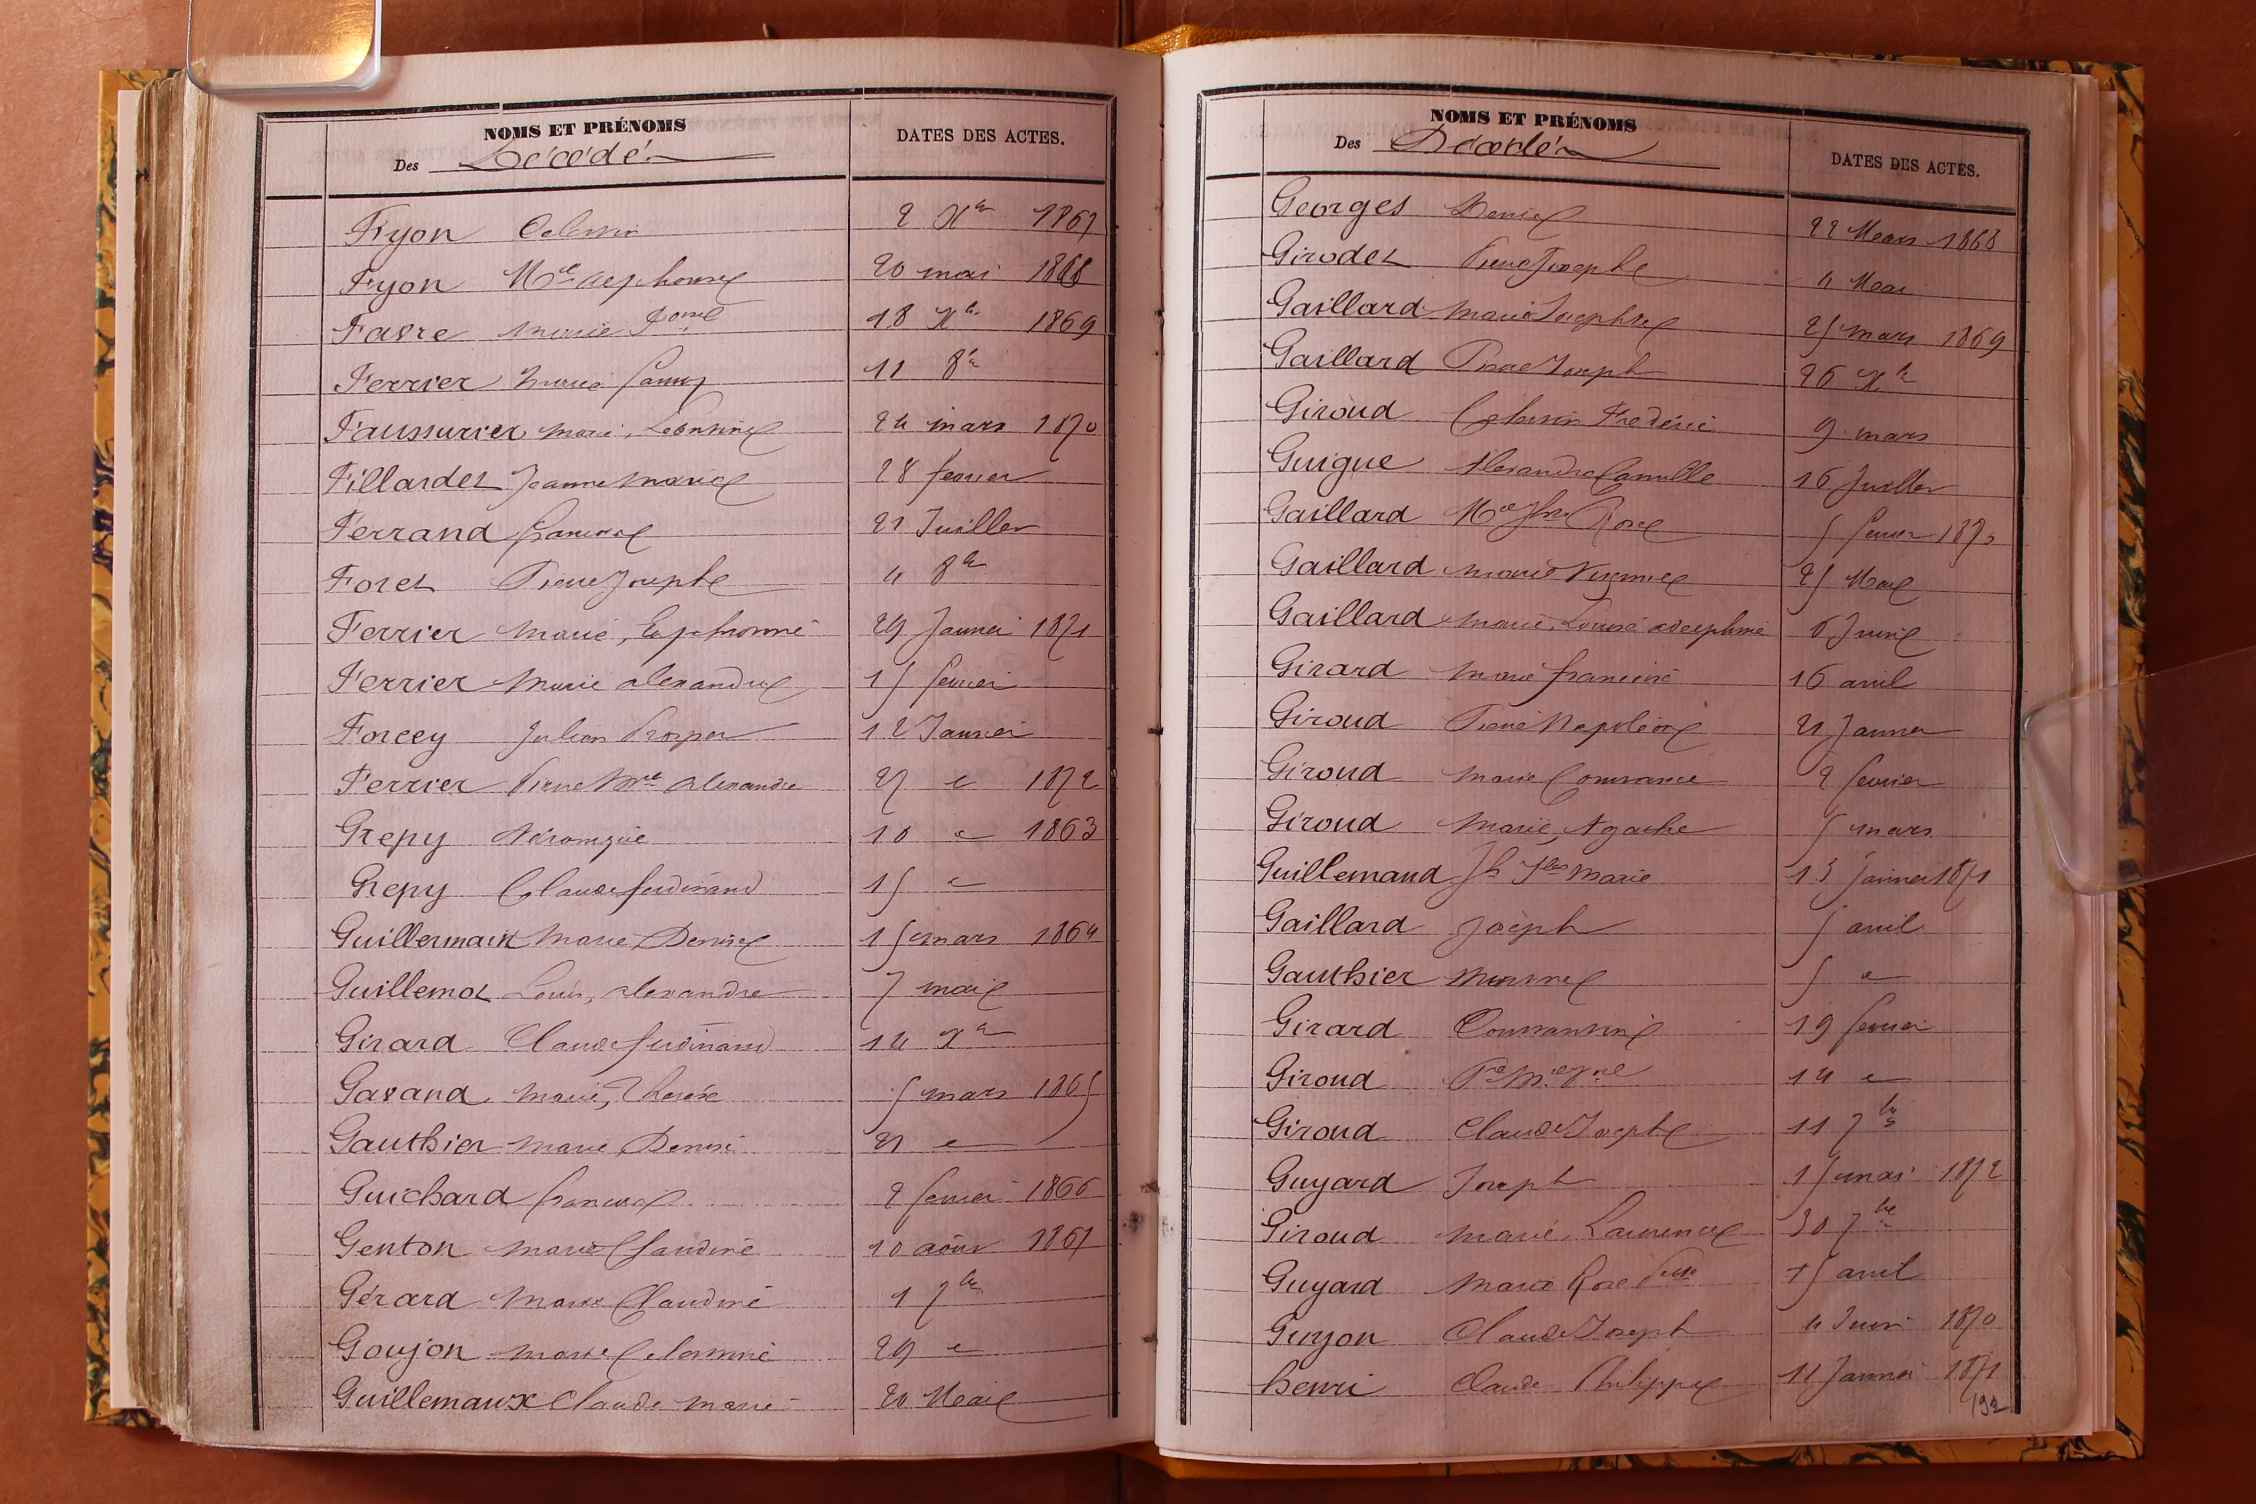 NOMS ET PRÉNOMS
Des Décédés
DATES DES ACTES.
Fyon Celestin 2 Xbre 1867
Fyon Mie Alphonse 20 mai 1868
Favre Marie Fçoise 18 Xbre 1869
Ferrier Marie Fanny 11 8bre
Faussurier Marie, Léontine 24 mars 1870
Fillardet Jeanne Marie 28 fevrier
Ferrand Francoise 21 Juillet
Foret Pierre Joseph 4 8bre
Ferrier Marie, Euphrosine 29 Janvier 1871
Ferrier Marie Alexandre 15 fevrier
Forcey Julien Prosper 12 Janvier
Ferrier Pierre Mie Alexandre 27 " 1872
Grepy Véronique 10 " 1863
Grepy Claude ferdinand 15 "
Guillermain Marie Denise 15 mars 1864
Guillemot Louis, Alexandre 7 mai
Girard Claude ferdinand 14 Xbre
Gavand Marie, Thérèse 5 mars 1865
Gauthier Marie Denise 21 "
Guichard francois 2 fevrier 1866
Genton Marie Claudine 10 août 1867
Gérard Marie Claudine 1 7bre
Goujon Marie Celestine 29 "
Guillemaux Claude Marie 20 Mai
NOMS ET PRÉNOMS
Des Décédés
DATES DES ACTES.
Georges Denise 22 Mars 1868
Girodet Pierre Joseph 4 Mai
Gaillard Marie Josephine 25 mars 1869
Gaillard Pierre Joseph 26 Xbre
Giroud Célestin Frédéric 9 mars
Guigue Alexandre Camille 16 Juillet
Gaillard Mie Rose 5 fevrier 1870
Gaillard Marie 25 Mai
Gaillard Marie, Louise Adelphine 6 Juin
Girard Marie francine 16 avril
Giroud Pierre Napoléon 21 Janvier
Giroud Marie Constance 2 fevrier
Giroud Marie, Agathe 5 mars
Guillemaud Jh Marie 13 Janvier 1871
Gaillard Joseph 5 avril
Gauthier 5 "
Girard Constantine 19 fevrier
Giroud 14 "
Giroud Claude Joseph 11 7bre
Guyard Joseph 15 mai 1872
Giroud Marie, Laurence 30 7bre
Guyard Marie Rose 15 avril
Guyon Claude Joseph 4 Juin 1870
henri Claude Philippe 11 Janvier 1871
192